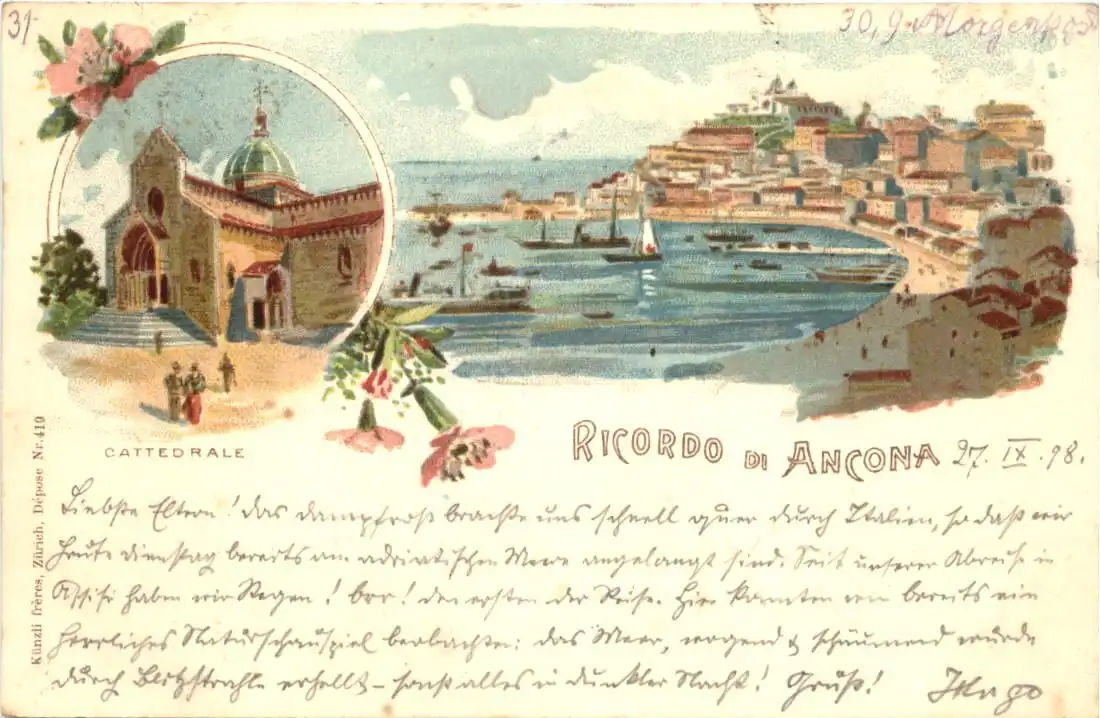 31
30,9 Morgenpost
CATTEDRALE
RICORDO DI ANCONA 27. IX. 98.
Künzli frères, Zürich, Dépose Nr. 419
Liebste Eltern! das dampfroß brachte uns schnell quer durch Italien, so daß wir
heute dienstag bereits am adriatischen Meere angelangt sind. Seit unserer Abreise in
Assisi haben wir Regen! brr! den ersten der Reise. Hier konnten wir bereits ein
herrliches Naturschauspiel beobachten: das Meer, wogend & schäumend wurde
durch Blitzstrahle erhellt – sonst alles in dunkler Nacht! Gruß! Hugo